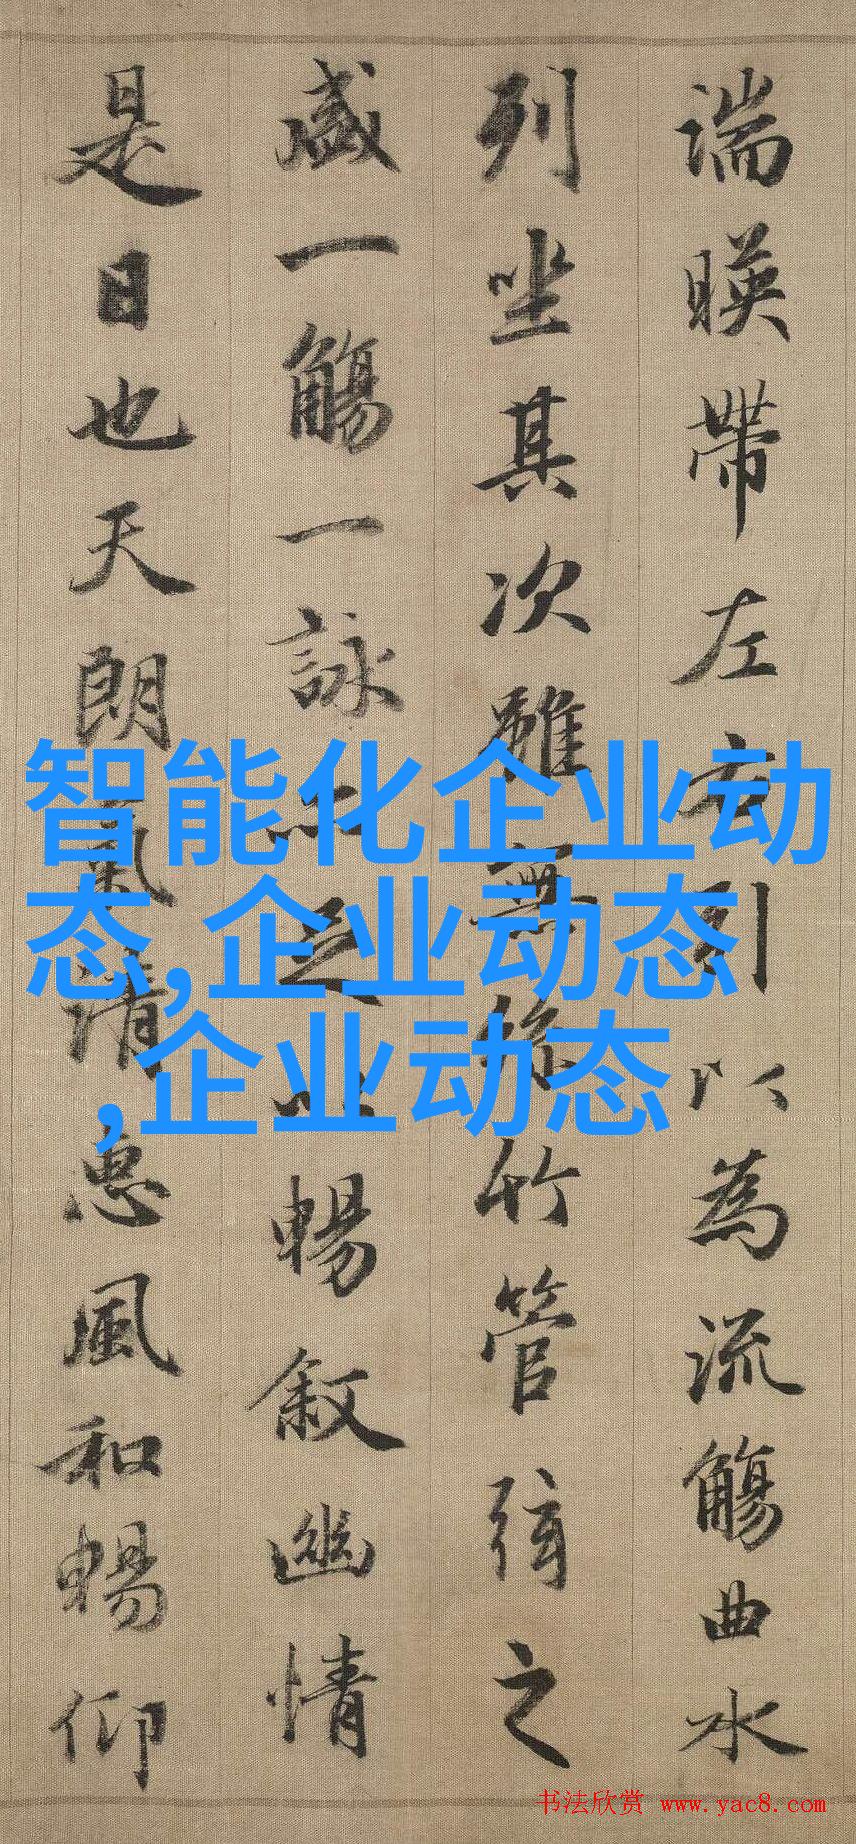 湍暎帶左右引以為流觴曲水
列坐其次雖無絲竹管弦之
盛一觴一詠亦足以暢叙幽情
是日也天朗氣清惠風和暢仰
智能化企业动
态,企业动态
,企业动态
书法欣赏 www.yac8.com